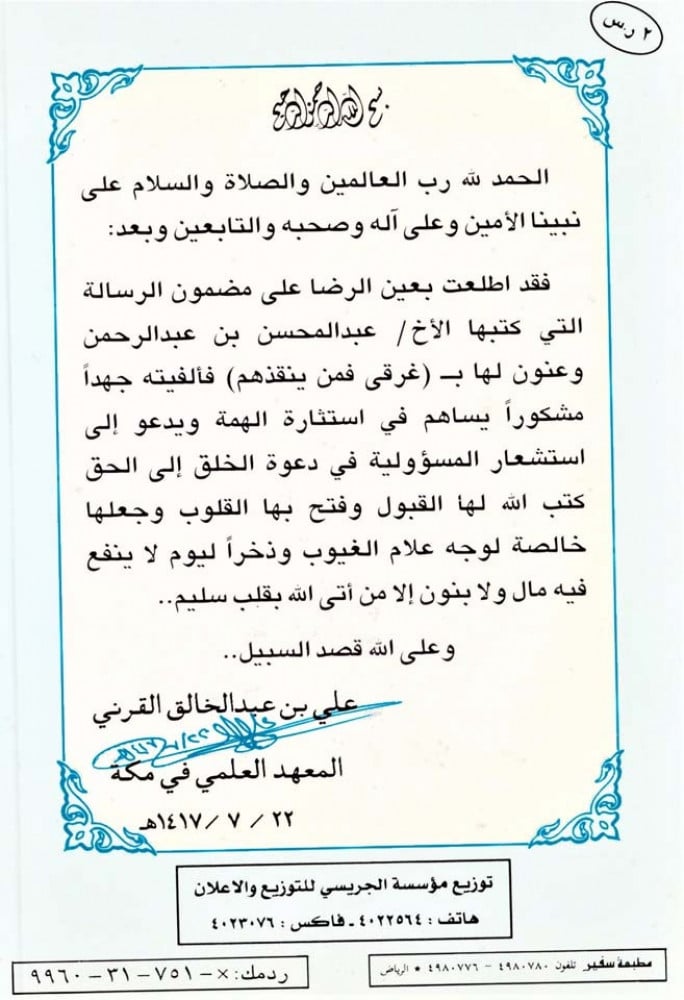 ٢ ر.س
بسم الله الرحمن الرحيم
الحمد لله رب العالمين والصلاة والسلام على
نبينا الأمين وعلى آله وصحبه والتابعين وبعد:
فقد اطلعت بعين الرضا على مضمون الرسالة
التي كتبها الأخ/ عبدالمحسن بن عبدالرحمن
وعنون لها بـ (غرقى فمن ينقذهم) فألفيته جهداً
مشكوراً يساهم في استثارة الهمة ويدعو إلى
استشعار المسؤولية في دعوة الخلق إلى الحق
كتب الله لها القبول وفتح بها القلوب وجعلها
خالصة لوجه علام الغيوب وذخراً ليوم لا ينفع
فيه مال ولا بنون إلا من أتى الله بقلب سليم..
وعلى الله قصد السبيل..
علي بن عبدالخالق القرني
المعهد العلمي في مكة
٢٢ / ٧ / ١٤١٧هـ
توزيع مؤسسة الجريسي للتوزيع والاعلان
هاتف : ٤٠٢٢٥٦٤ ـ فاكس : ٤٠٢٣٠٧٦
مطبعة سفير تلفون ٤٩٨٠٧٨٠ – ٤٩٨٠٧٧٦ * الرياض
ردمك: ×-٧٥١-٣١-٩٩٦٠